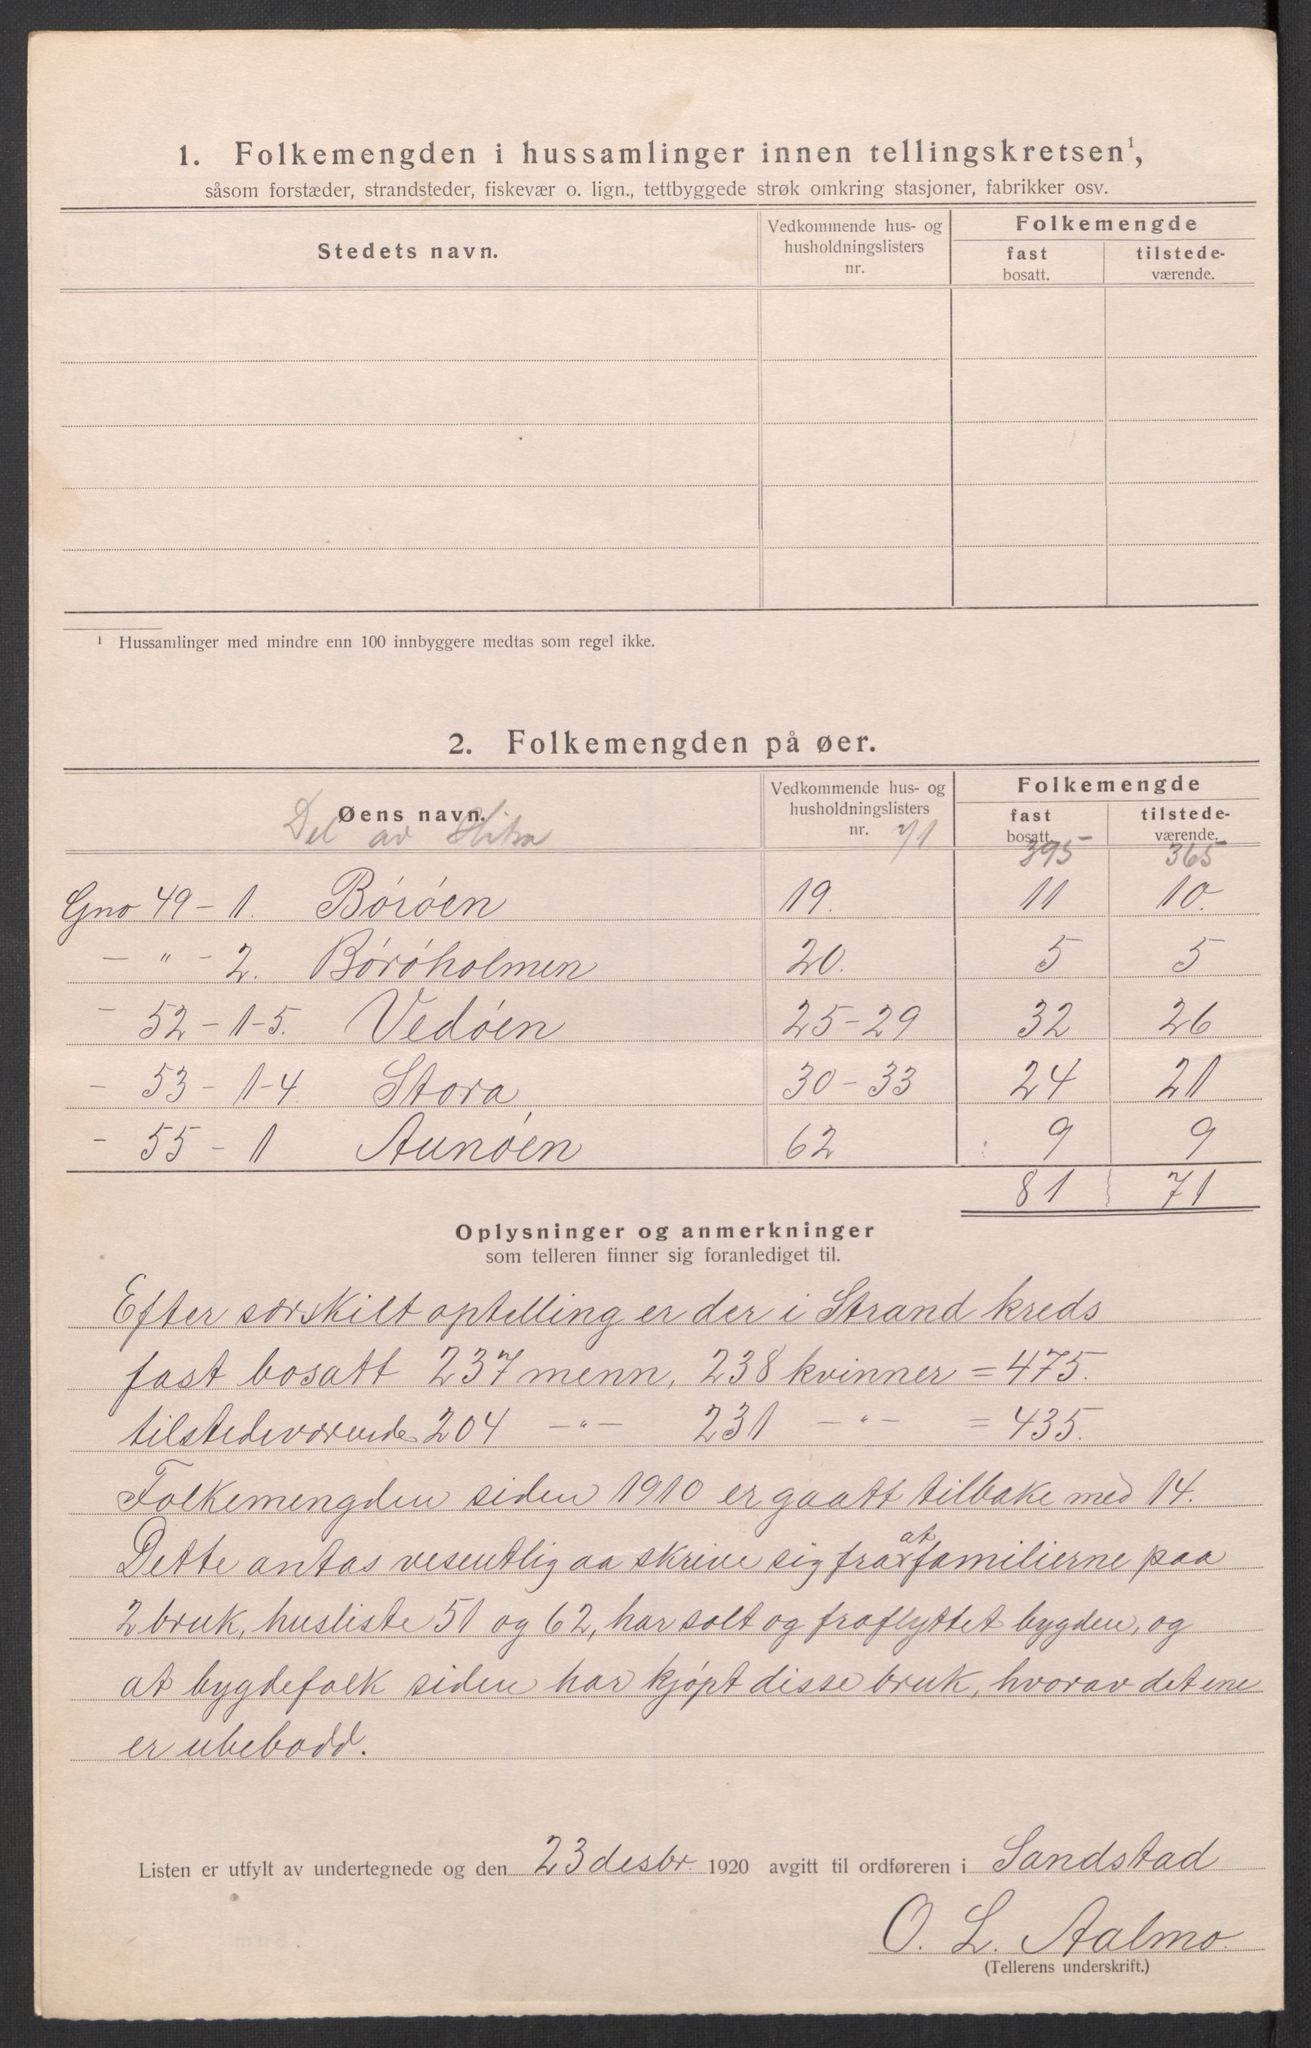 1. Folkemengden i hussamlinger innen tellingskretsen¹,
såsom forstæder, strandsteder, fiskevær o. lign., tettbyggede strøk omkring stasjoner, fabrikker osv.
Stedets navn.
Vedkommende hus- og
husholdningslisters
nr.
Folkemengde
fast
bosatt.
tilstede-
værende.
¹ Hussamlinger med mindre enn 100 innbyggere medtas som regel ikke.
2. Folkemengden på øer.
Øens navn.
Vedkommende hus- og
husholdningslisters
nr.
Folkemengde
fast
bosatt.
tilstede-
værende.
Del av Hitra 395 365
Gno 49 - 1. Böröen 19. 11 10.
- " - 2. Böröholmen 20. 5 5
- 52 - 1-5. Vedöen 25-29 32 26
- 53 - 1-4. Storø 30-33 24 21
- 55 - 1 Aunöen 62 9 9
81 71
Oplysninger og anmerkninger
som telleren finner sig foranlediget til.
Efter særskilt optelling er der i Strand kreds
fast bosatt 237 menn, 238 kvinner = 475.
tilstedeværende 204 -"- 231 -"- = 435.
Folkemengden siden 1910 er gaatt tilbake med 14.
Dette antas vesentlig aa skrive sig fra at familierne paa
2 bruk, husliste 51 og 62, har solt og fraflyttet bygden, og
at bygdefolk siden har kjøpt disse bruk, hvorav det ene
er ubebodd.
Listen er utfylt av undertegnede og den 23 desbr. 1920 avgitt til ordføreren i Sandstad
O. L. Aalmo.
(Tellerens underskrift.)